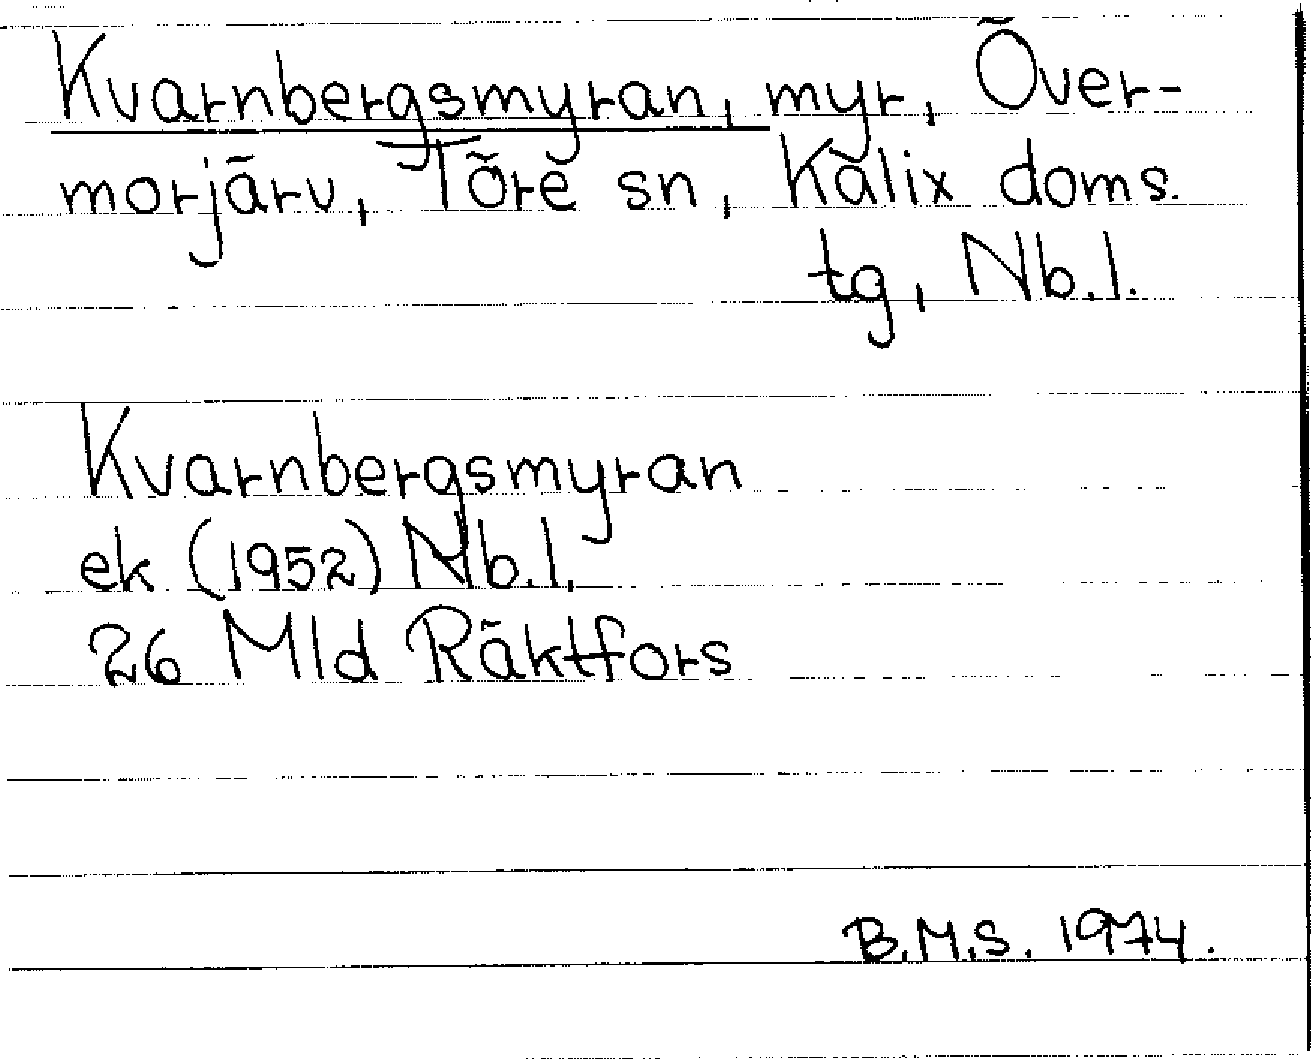 Kvarnbergsmyran, myr, Över-
morjärv, Töre sn, Kalix doms.
tg, Nb.l.
Kvarnbergsmyran
ek (1952) Nb.l.
26 Mld Räktfors
B.M.S. 1974.